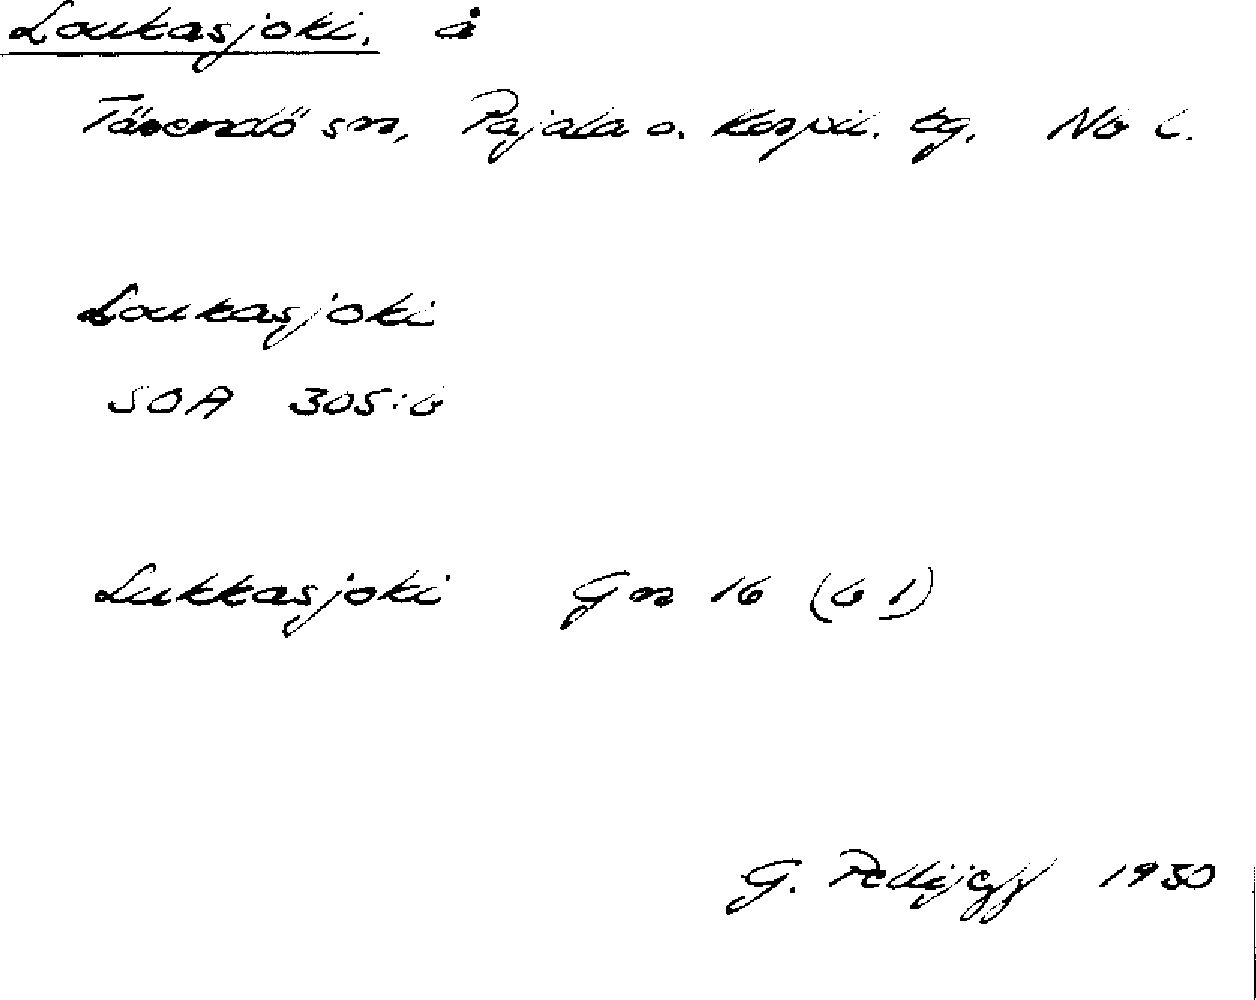 Loukasjoki, å
Tärendö sn, Pajala o. Korpil. tg. Nb l.
Loukasjoki
SOA 305:6
Lukkasjoki Gn 16 (6 1)
G. Pellijeff 1950